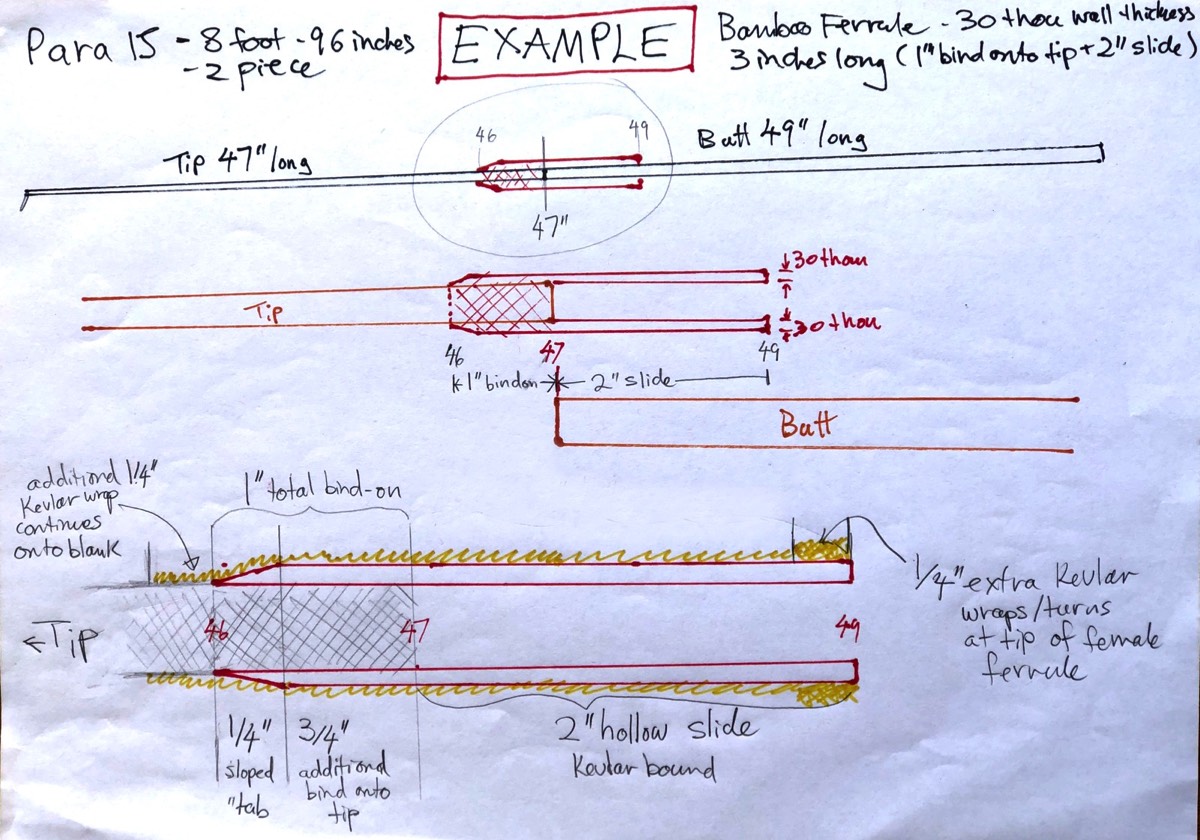 Para 15 - 8 foot - 96 inches
- 2 piece
EXAMPLE
Bamboo Ferrule - 30 thou wall thickness
3 inches long (1" bind onto tip + 2" slide)
Tip 47" long
46
49
Butt 49" long
47"
Tip
30 thou
30 thou
46
47
49
1" bindon
2" slide
Butt
additional 1/4"
Kevlar wrap
continues
onto blank
1" total bind-on
1/4" extra Kevlar
wraps/turns
at tip of female
ferrule
←Tip
46
47
49
1/4"
sloped
"tab
3/4"
additional
bind onto
tip
2" hollow slide
Kevlar bound